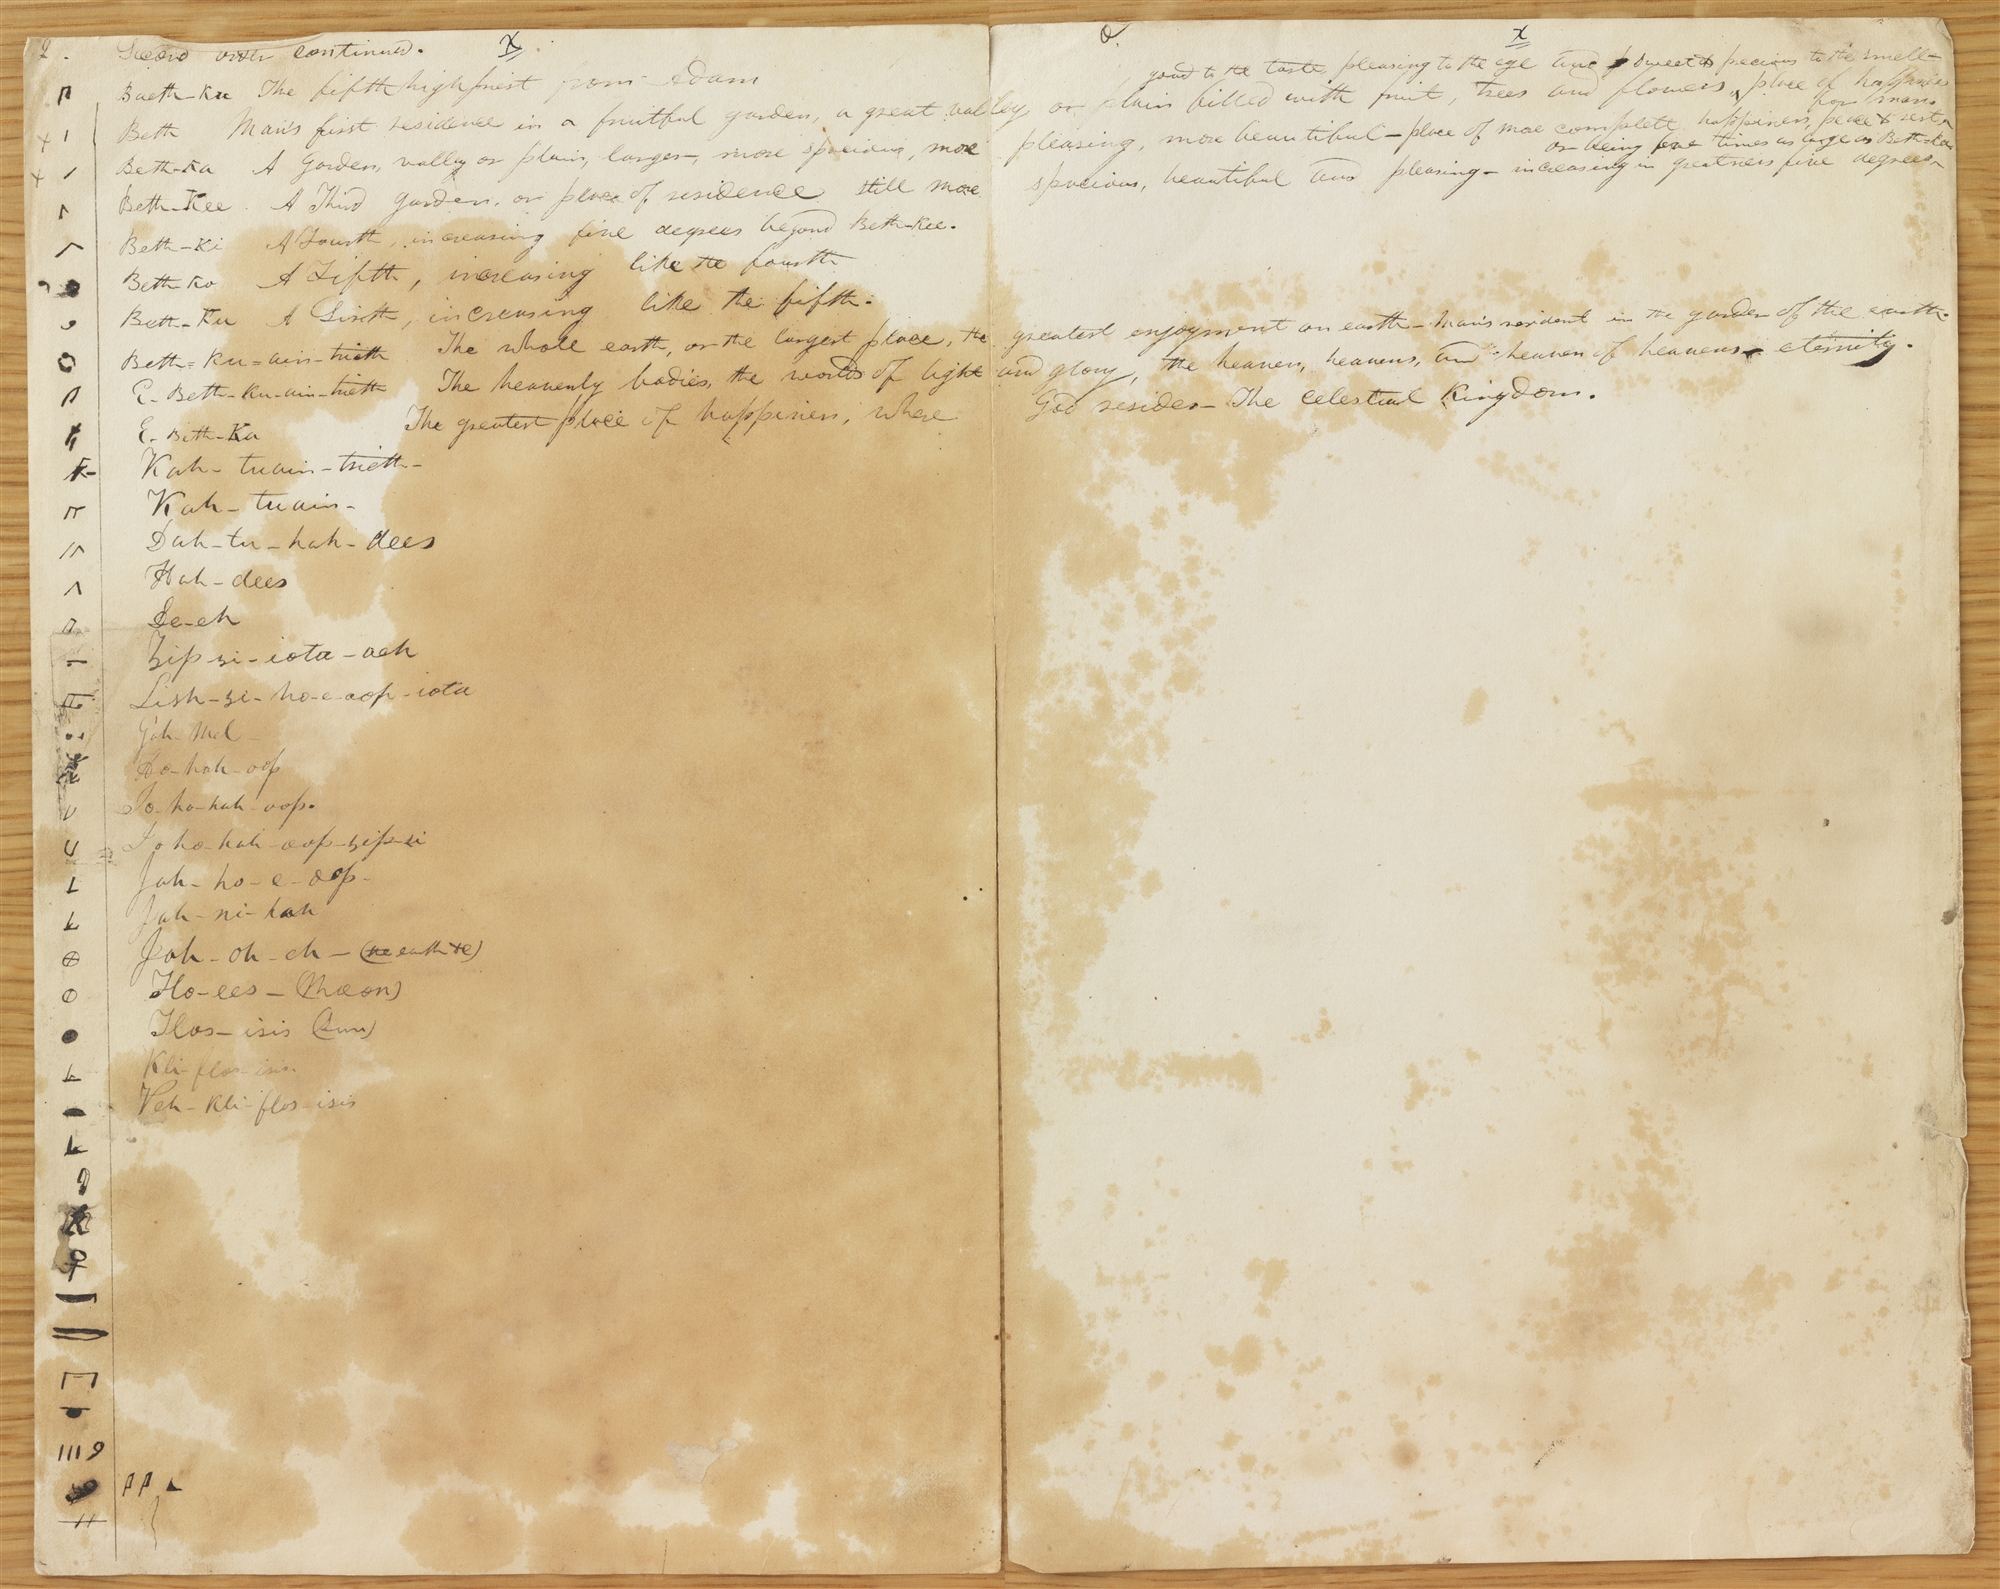 2. Second part continued. X
Baeth-ku The fifth high priest from Adam
Beth Man's first residence in a fruitful garden, a great valley or plain filled with fruit, trees and flowers, place of happiness
good to the taste, pleasing to the eye and sweet & precious to the smell—
for man
Beth-ka A Garden, vally or plain, larger, more spacious, more pleasing, more beautiful— place of more complete happiness, peace & rest
or being five times as large as Beth-ka
Beth-Kee. A Third garden, or place of residence still more spacious, beautiful and pleasing— increasing in greatness five degrees
Beth-Ki A Fourth, increasing five degrees beyond Beth-Kee.
Beth-ko A Fifth, increasing like the fourth
Beth-Ku A Sixth, increasing like the fifth.
Beth-ku-ain-trieth The whole earth, or the largest place, the greatest enjoyment on earth— Man's resident in the garden of the earth.
E-Beth-ku-ain-trieth The heavenly bodies, the worlds of light and glory, the heaven, heavens, and heaven of heavens eternity.
E-Beth-Ka The greatest place of happiness, where God resides— The celestial Kingdom.
Kah-tuain-trieth-
Kah-tuain-
Dah-tu-hah-dees
Hah-dees
De-eh
Zip-zi-iota-aeh
Lish-zi-ho-e-oop-iota
Gah-mel-
Ho-hah-oop
Jo-ho-hah-oop.
Jo ho-hah-oop-zip-zi
Jah-ho-e-oop-
Jah-ni-hah
Jah-oh-eh— (the earth &c)
Flo-ees— (Moon)
Flos-isis (Sun)
Kli-flos-isis.
Veh-Kli-flos-isis